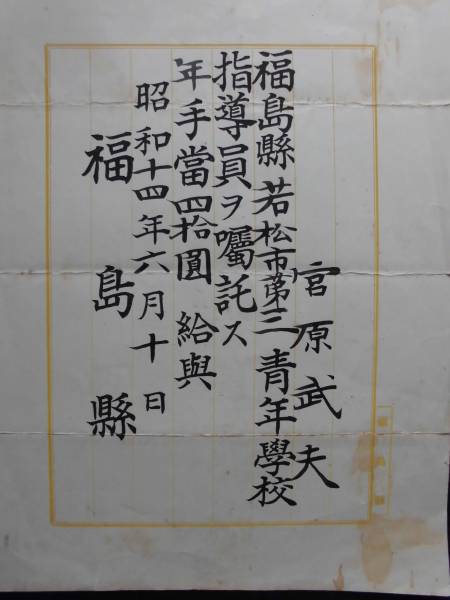 宮原武夫
福島縣若松市第三青年學校
指導員ヲ囑託ス
年手當四拾圓 給與
昭和十四年六月十日
福島縣
福島縣